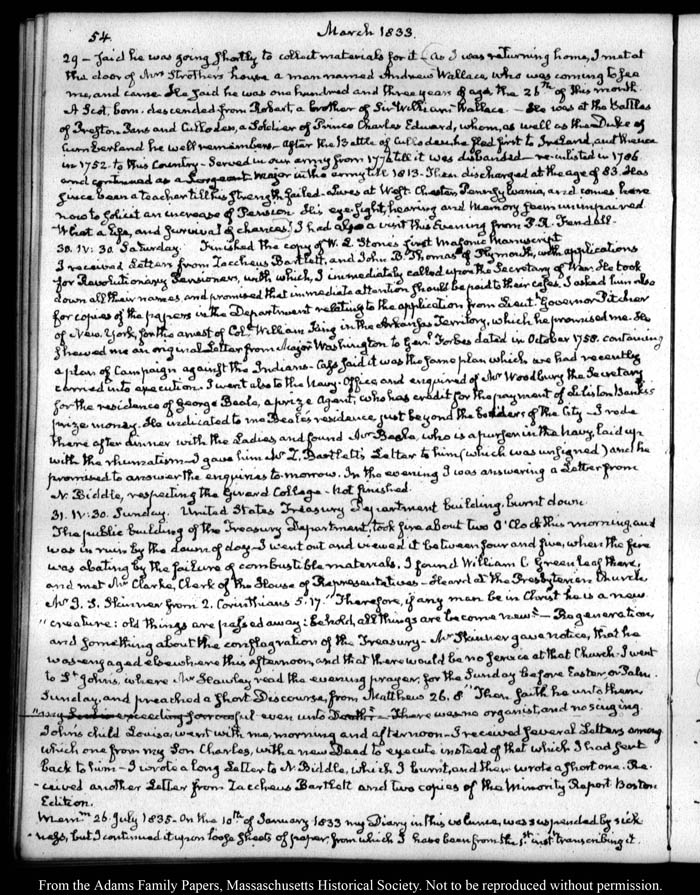 54.
March 1833.
29 — Said he was going shortly to collect materials for it — As I was returning home, I met at
the door of Mrs Strother's house a man named Andrew Wallace, who was coming to see
me, and came. He said he was one hundred and three years of age the 28th of this month.
A Scot, born, descended from Robert, a brother of Sir William Wallace. — He was at the battles
of Preston Pans and Culloden, a Soldier of Prince Charles Edward, whom, as well as the Duke of
Cumberland he well remembers. After the Battle of Culloden, he fled first to Ireland, and thence
in 1752 to this Country — Served in our army from till it was disbanded — re-inlisted in 1786
and continued as a Sergeant major in the army till 1813. Then discharged at the age of 83. Has
since been a teacher till his strength failed. Lives at West Chester, Pennsylvania, and comes here
now to solicit an increase of Pension. His eye-sight, hearing and memory seem unimpaired
What a life, and survival of chances! I had also a visit this Evening from P. R. Fendall.
30. IV: 30. Saturday. Finished the copy of W. L. Stone's first Masonic Manuscript
I received Letters from Zaccheus Bartlett, and John B. Thomas of Plymouth, with applications
for Revolutionary Pensioners, with which, I immediately called upon the Secretary of War. He took
down all their names, and promised that immediate attention should be paid to their cases. I asked him also
for copies of the papers in the Department relating to the application from Lieut. Governor Pitcher
of New-York, for the arrest of Col. William King in the Arkansas Territory, which he promised me. He
shewed me an original Letter from Major Washington to Genl. Forbes dated in October 1758. containing
a plan of Campaign against the Indians. Cass said it was the same plan which we had recently
carried into execution. I went also to the Navy-Office and enquired of Mr Woodbury the Secretary
for the residence of George Beale, a prize Agent, who has credit for the payment of Liston Banks's
prize money. He indicated to me Beale's residence just beyond the borders of the City — I rode
there after dinner with the Ladies and found Mr Beale, who is a purser in the Navy, laid up
with the rhumatism — I gave him Mr Z. Bartlett's Letter to him (which was unsigned) and he
promised to answer the enquiries to-morrow. In the evening I was answering a Letter from
N. Biddle, respecting the Girard College — not finished.
31. IV: 30. Sunday. United States Treasury Department building, burnt down
The public building of the Treasury Department, took fire about two O'Clock this morning, and
was in ruin by the dawn of day — I went out and viewed it between four and five, when the fire
was abating by the failure of combustible materials. I found William C. Greenleaf there,
and met Mr Clarke, Clerk of the House of Representatives — Heard at the Presbyterian Church
Mr I. S. Skinner from 2. Corinthians 5. 17. "Therefore, if any man be in Christ he is a new
"creature: old things are passed away: behold, all things are become new" — Regeneration,
and something about the conflagration of the Treasury — Mr Skinner gave notice, that he
was engaged elsewhere this afternoon, and that there would be no service at that Church. I went
to St Johns, where Mr Hawley read the evening prayer, for the Sunday before Easter, or Palm
Sunday, and preached a short Discourse, from Matthew 26. 8 "Then saith he unto them
"my soul is exceeding sorrowful even unto Death" — There was no organist, and no singing.
John's child Louisa, went with me, morning and afternoon — I received several Letters among
which one from my Son Charles, with a new Deed to execute instead of that which I had sent
back to him — I wrote a long Letter to N. Biddle, which I burnt, and then wrote a short one. Re-
-ceived another Letter from Zaccheus Bartlett and two copies of the Minority Report Boston
Edition.
Memm 26. July 1835. On the 10th of January 1833 my Diary in this volume, was suspended by sick-
ness, but I continued it upon loose sheets of paper from which I have been from the 1st inst transcribing it.
From the Adams Family Papers, Massachusetts Historical Society. Not to be reproduced without permission.